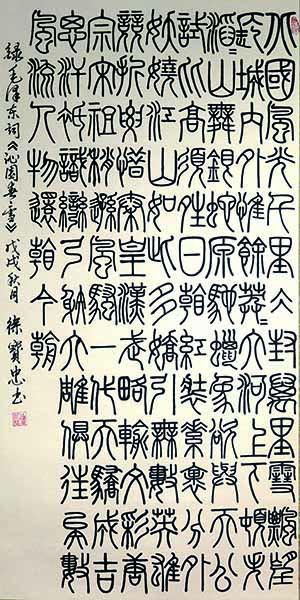 北國風光千里冰封萬里雪飄望
長城內外惟餘莽莽大河上下頓失
滔滔山舞銀蛇原馳蠟象欲與天公
試比高須晴日看紅裝素裹分外
妖嬈江山如此多嬌引無數英雄
競折腰惜秦皇漢武略輸文彩唐
宗宋祖稍遜風騷一代天驕成吉
思汗祇識彎弓射大雕俱往矣數
風流人物還看今朝
録毛澤东詞《沁園春雪》戊戌秋月 徐寶忠书